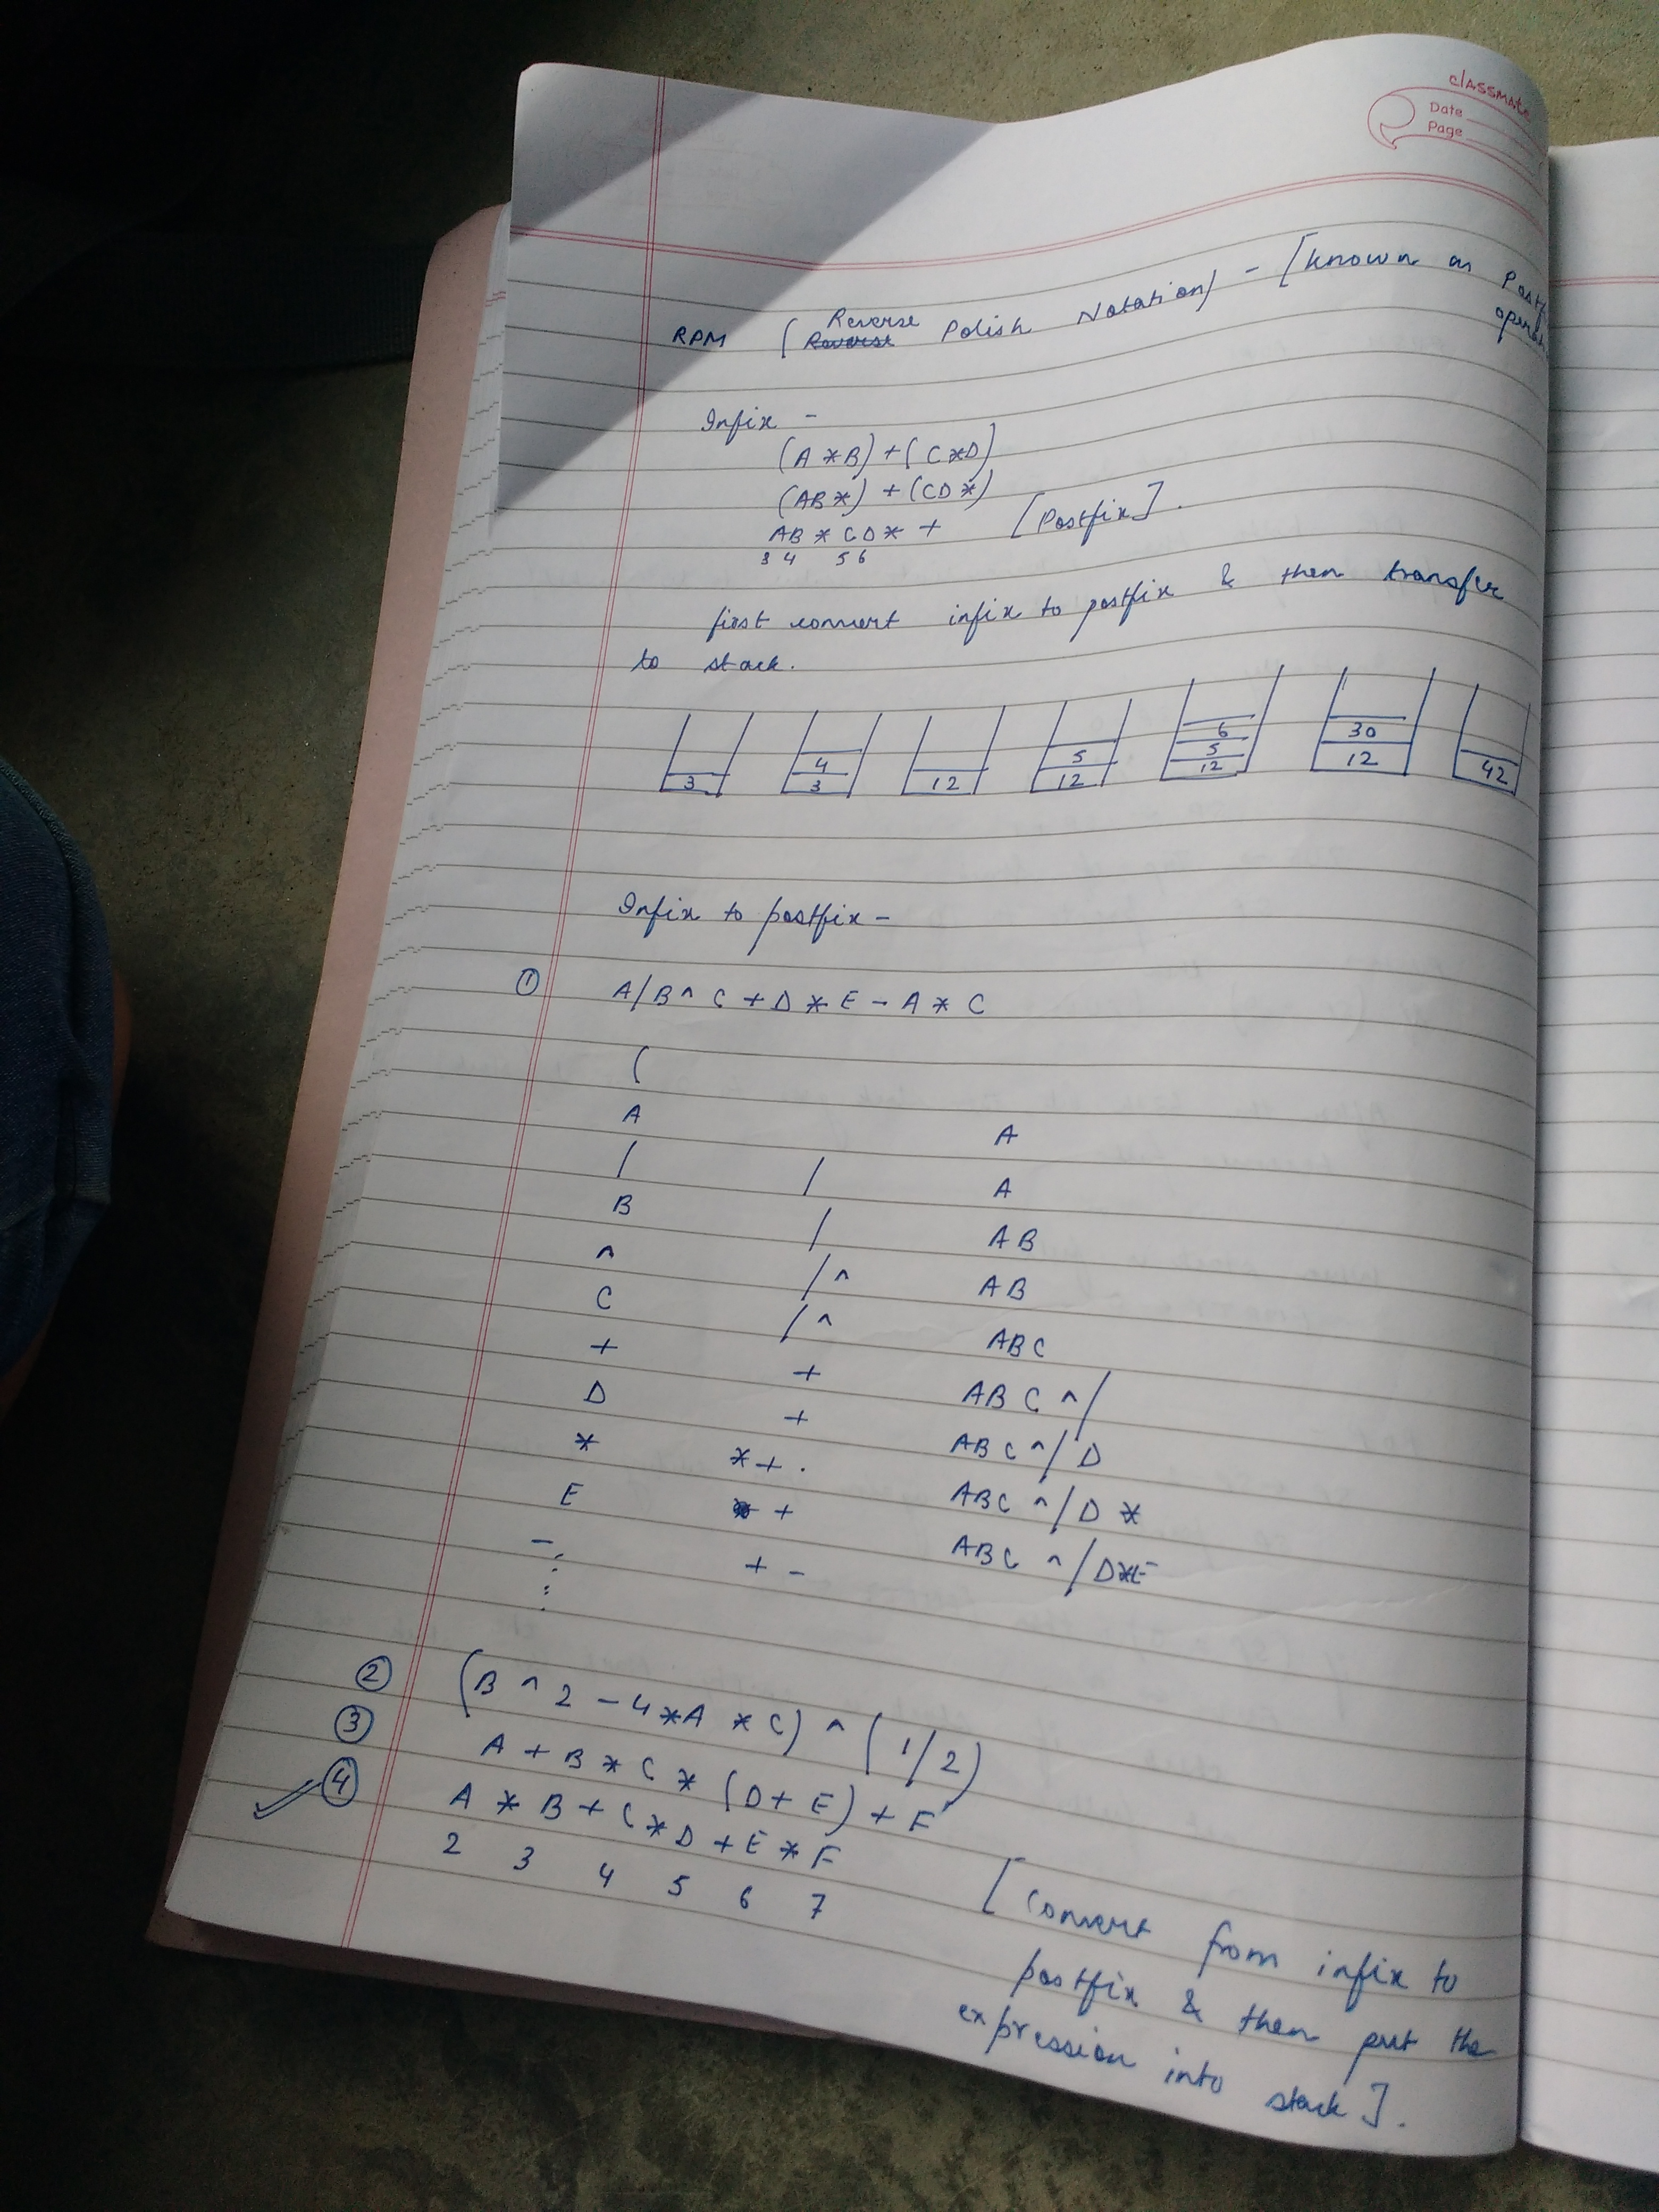 classmate
Date
Page
RPM (Reverse Polish Notation) - [known as
Infix -
(A * B) + (C * D)
(AB*) + (CD*)
AB * CD* + [Postfix].
3 4 5 6
first convert infix to postfix & then transfer
to stack.
3
4
3
12
5
12
6
5
12
30
12
42
Infix to postfix -
① A/B^C+D*E-A*C
(
A A
/ / A
B / AB
^ /^ AB
C /^ ABC
+ + ABC^/
D + ABC^/D
* *+. ABC^/D*
E * + ABC^/D*E
- + -
② (B^2-4*A*C)^(1/2)
③ A+B*C*(D+E)+F
④ A*B+C*D+E*F
2 3 4 5 6 7
[Convert from infix to
postfix & then put the
expression into stack].